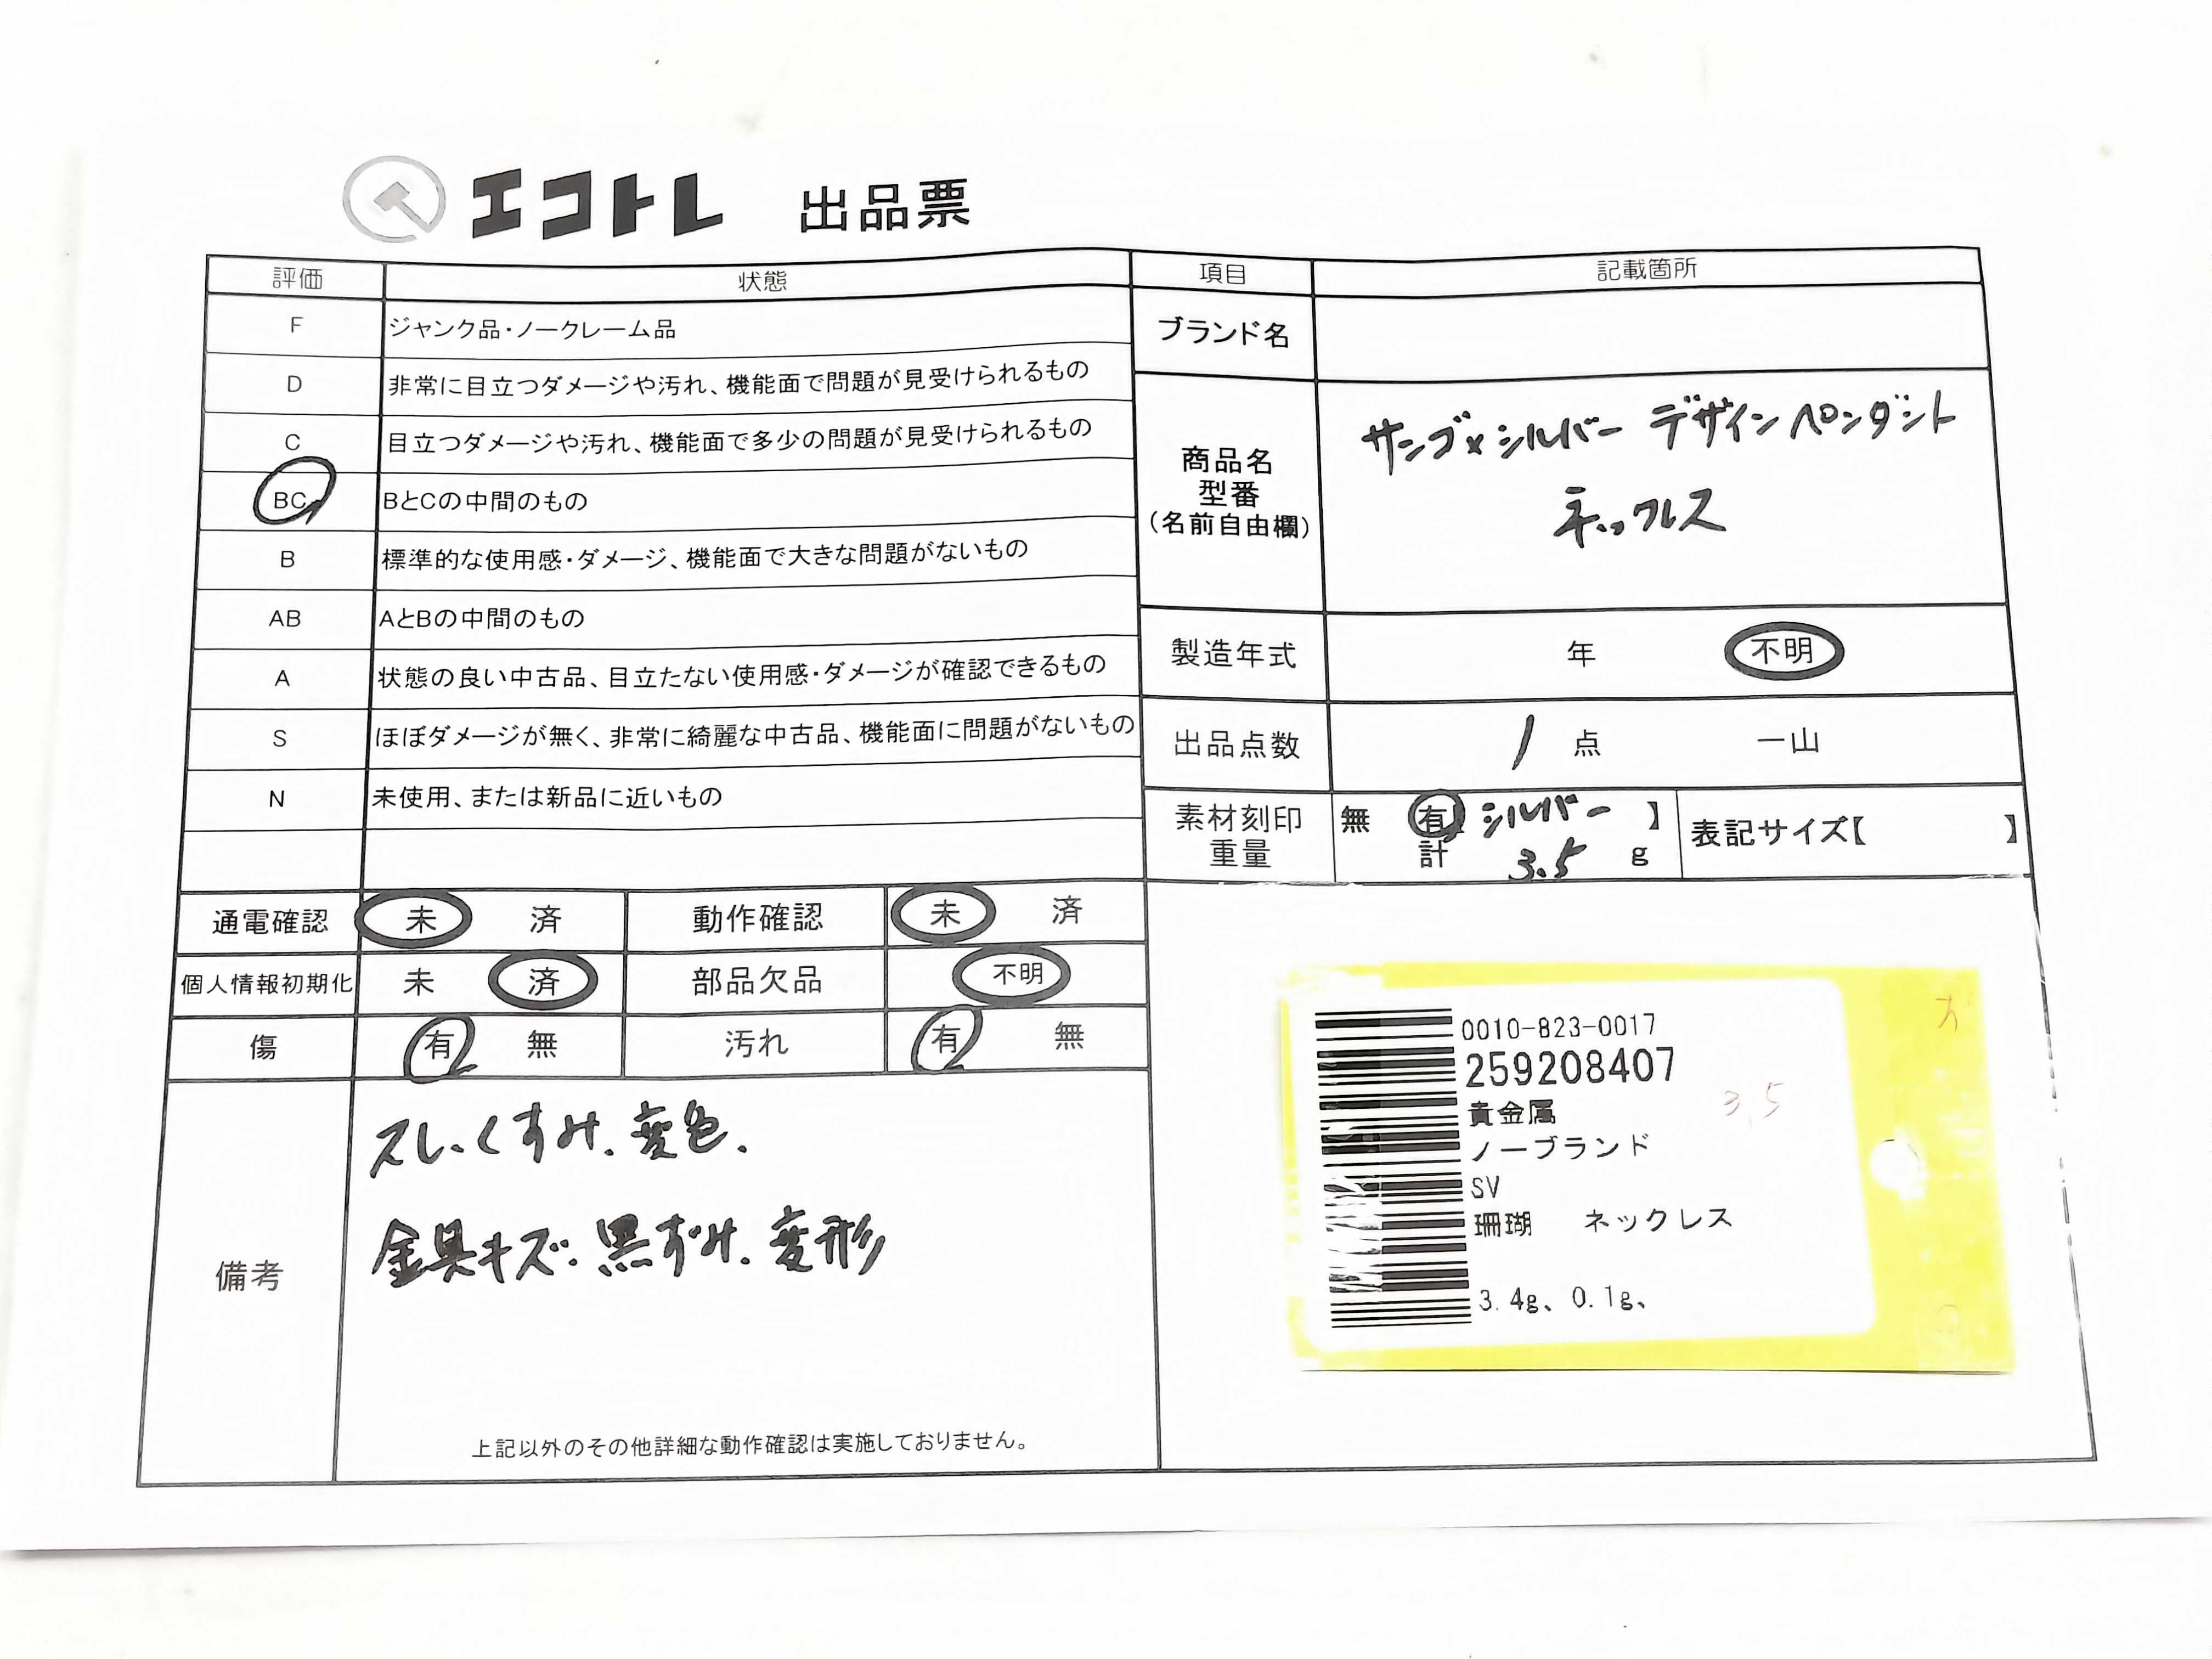 エコトレ 出品票
評価 状態
F ジャンク品・ノークレーム品
D 非常に目立つダメージや汚れ、機能面で問題が見受けられるもの
C 目立つダメージや汚れ、機能面で多少の問題が見受けられるもの
BC BとCの中間のもの
B 標準的な使用感・ダメージ、機能面で大きな問題がないもの
AB AとBの中間のもの
A 状態の良い中古品、目立たない使用感・ダメージが確認できるもの
S ほぼダメージが無く、非常に綺麗な中古品、機能面に問題がないもの
N 未使用、または新品に近いもの
項目 記載箇所
ブランド名
商品名
型番
(名前自由欄)
サンゴ×シルバー デザインペンダント
ネックレス
製造年式 年 不明
出品点数 1 点 一山
素材刻印 無 有 シルバー 】
重量 計 3.5 g
表記サイズ【 】
通電確認 未 済 動作確認 未 済
個人情報初期化 未 済 部品欠品 不明
傷 有 無 汚れ 有 無
備考
スレ、くすみ、変色、
金具キズ、黒ずみ、変形
上記以外のその他詳細な動作確認は実施しておりません。
0010-823-0017
259208407
貴金属
3.5
ノーブランド
SV
珊瑚 ネックレス
3.4g、0.1g、